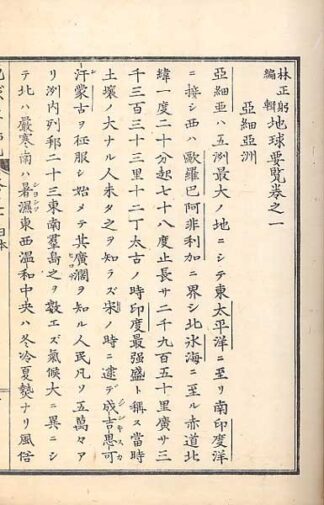 林正躬編輯 地球要覧巻之一
亞細亞洲
亞細亞ハ五洲最大ノ地ニシテ東太平洋ニ至リ南印度洋
ニ接シ西ハ歐羅巴阿非利加ニ界シ北氷海ニ至ル赤道北
緯一度二十分起七十八度止長サ二千九百五十里廣サ三
千三百三十三里十二丁太古ノ時印度最强盛ト稱ス當時
土壤ノ大ナル人未タ之ヲ知ラズ宋ノ時ニ逮デ成吉思可
汗蒙古ヲ征服シ始メテ其廣濶ヲ知ル人民凡ソ五萬々ア
リ洲内列邦二十三東南羣島之ヲ數エズ氣候大ニ異ニシ
テ北ハ嚴寒南ハ暑濕東西温和中央ハ冬冷夏熱ナリ風俗